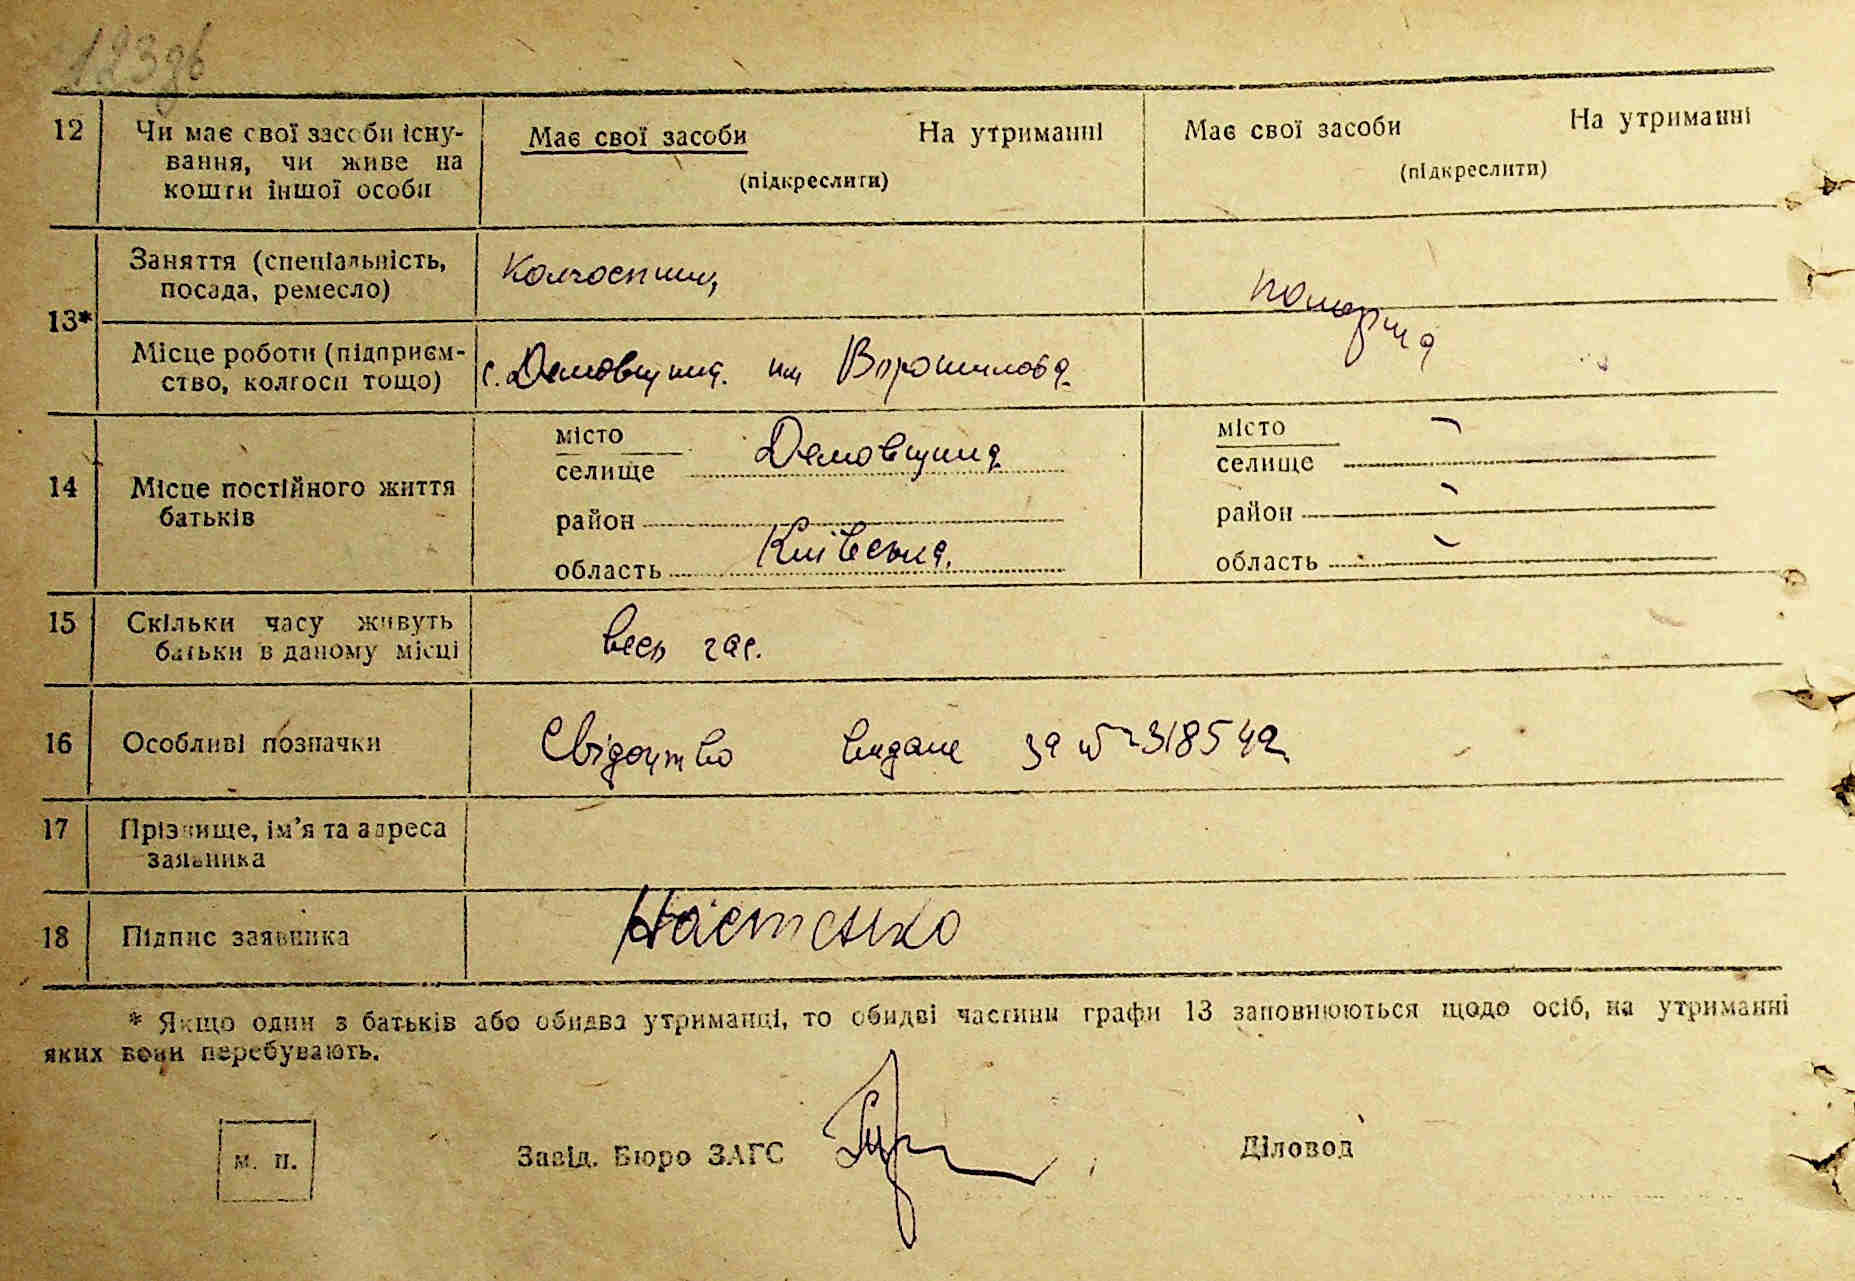 123 зв
12 Чи має свої засоби існу-
вання, чи живе на
кошти іншої особи
Має свої засоби На утриманні
(підкреслити)
Має свої засоби На утриманні
(підкреслити)
13* Заняття (спеціальність,
посада, ремесло)
Колгоспник
померла
Місце роботи (підприєм-
ство, колгосп тощо)
с. Демовщина. ім Ворошилова
14 Місце постійного життя
батьків
місто
селище Демовщина
район
область Київська.
місто -
селище
район -
область -
15 Скільки часу живуть
батьки в даному місці
весь час.
16 Особливі позначки
Свідоцтво видане за № 318542
17 Прізвище, ім'я та адреса
заявника
18 Підпис заявника
Настенко
* Якщо один з батьків або обидва утриманці, то обидві частини графи 13 заповнюються щодо осіб, на утриманні
яких вони перебувають.
м. п.
Завід. Бюро ЗАГС
Діловод